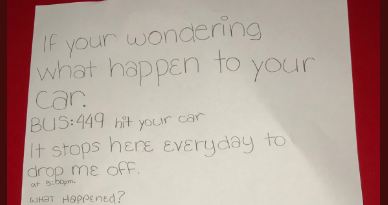 If your wondering
what happen to your
car.
BUS:449 hit your car
It stops here everyday to
drop me off.
at 5:00pm.
What Happened?